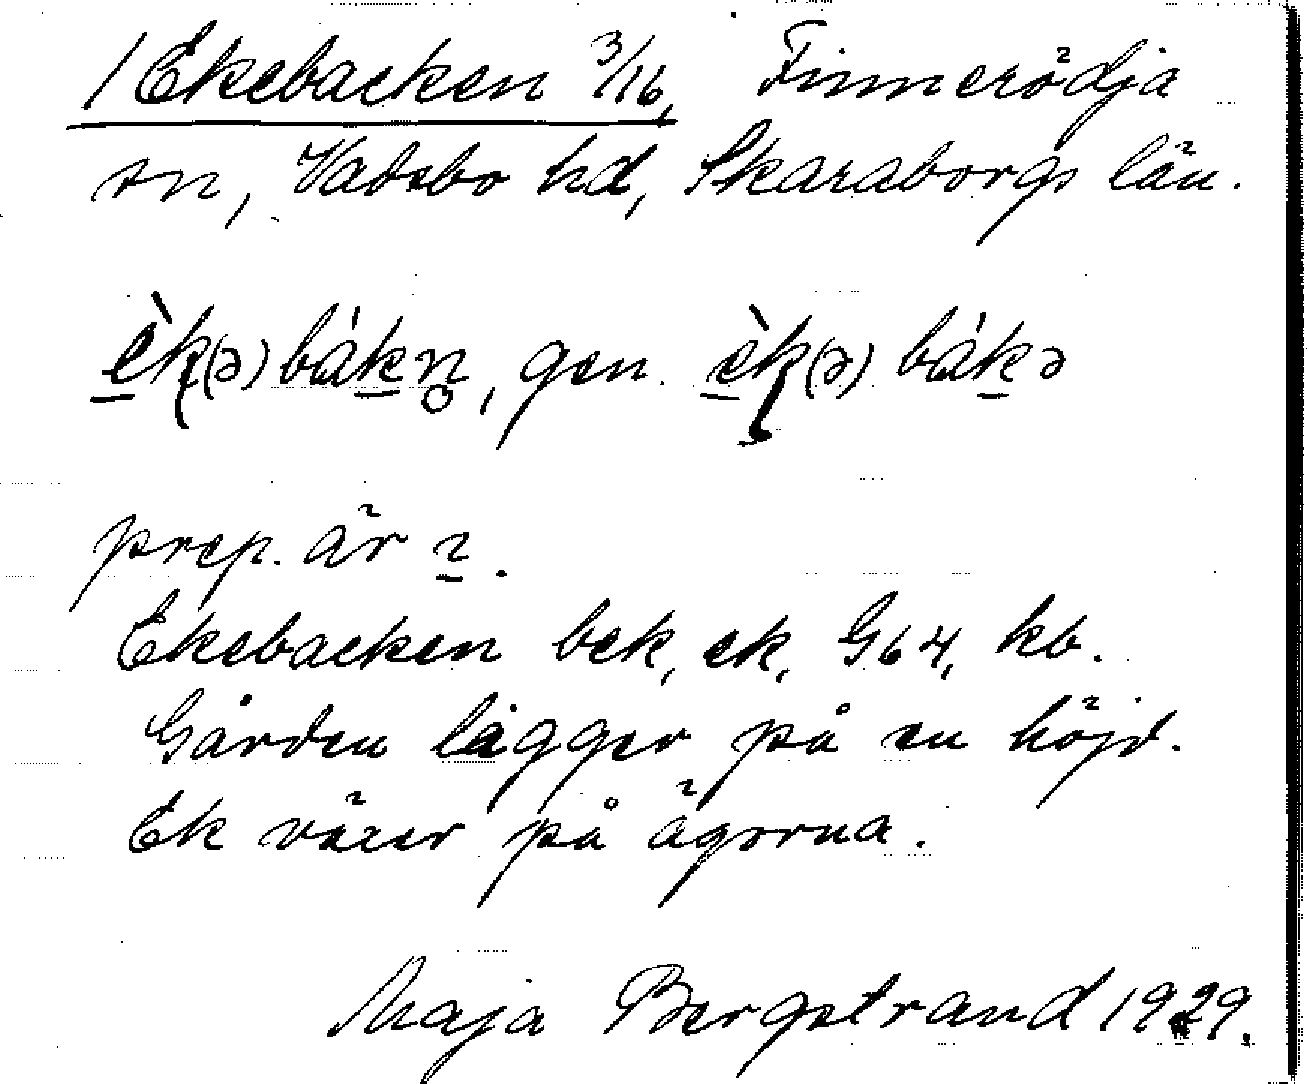 1 Ekebacken 3/16, Finnerödja
sn, Vadsbo hd, Skaraborgs län.
èk(ə)bákn̥, gen. èk(ə)bákə
prep. är
Ekebacken bek, ek, G64, kb.
Gården ligger på en höjd.
Ek växer på ägorna.
Maja Bergstrand 1929.